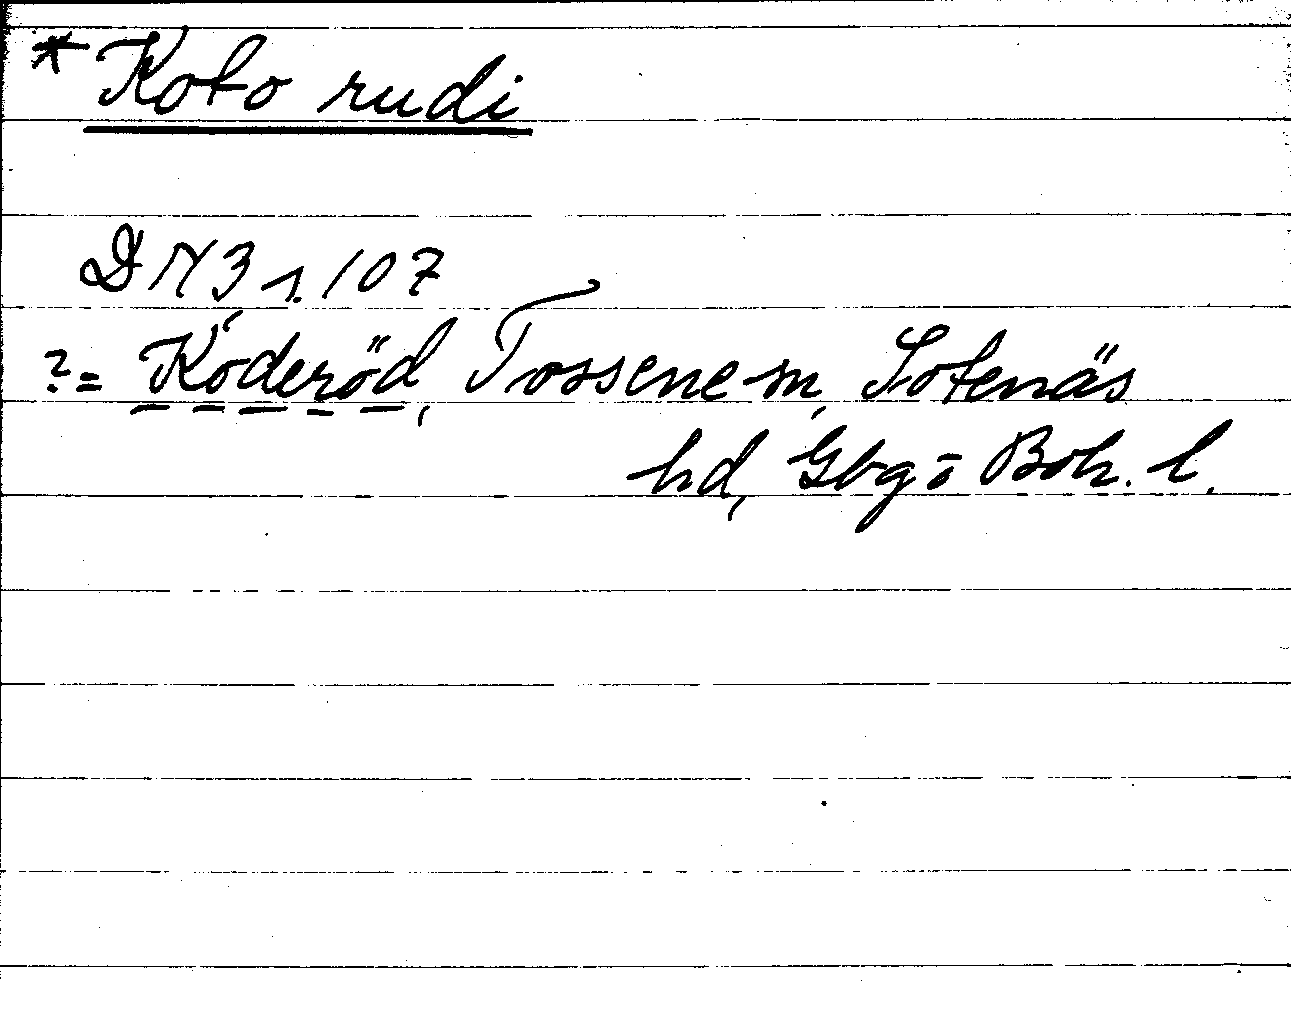 * Koto rudi
DN 3 s. 107
? = Koderöd, Tossene sn, Sotenäs
hd, Gbg o Boh. l.